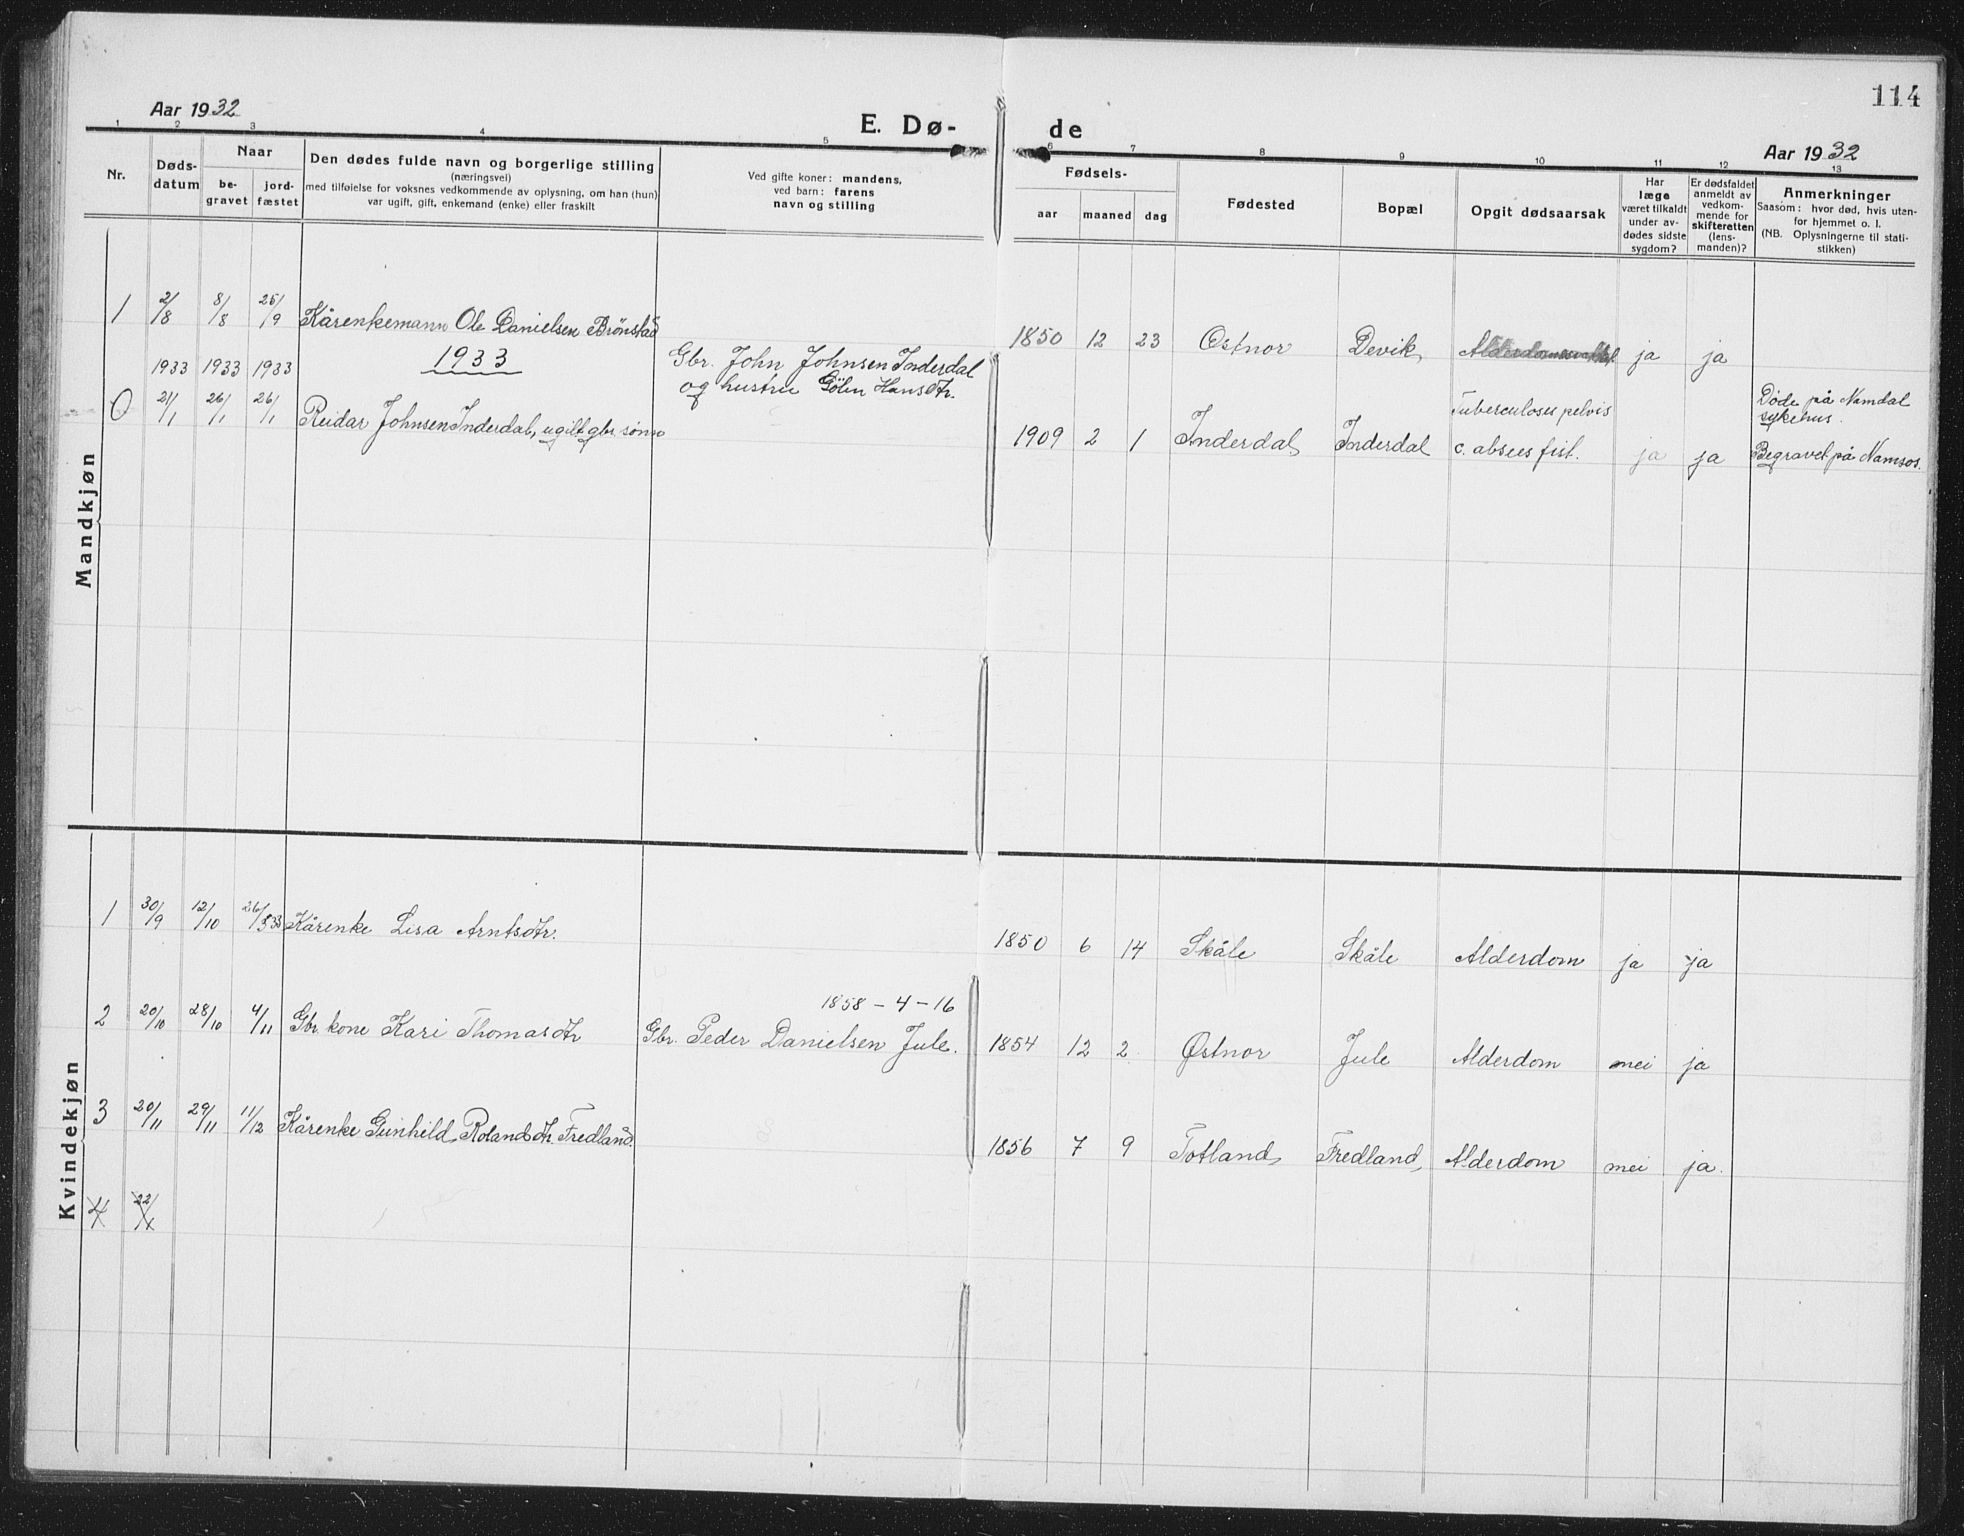 114
Aar 1932
E. Dø-
de
Aar 1932
1 2 3 4 5
6 7 8 9 10 11 12 13
Nr.
Døds-
datum
Naar
be-
gravet
jord-
fæstet
Den dødes fulde navn og borgerlige stilling
(næringsvei)
med tilføielse for voksnes vedkommende av oplysning, om han (hun)
var ugift, gift, enkemand (enke) eller fraskilt
Ved gifte koner: mandens,
ved barn: farens
navn og stilling
Fødsels-
aar
maaned
dag
Fødested
Bopæl
Opgit dødsaarsak
Har
læge
været tilkaldt
under av-
dødes sidste
sygdom?
Er dødsfaldet
anmeldt av
vedkom-
mende for
skifteretten
(lens-
manden)?
Anmerkninger
Saasom: hvor død, hvis uten-
for hjemmet o. l.
(NB. Oplysningerne til stati-
stikken)
Mandkjøn
1 2/8 8/8 25/9 Kårenkemann Ole Danielsen Brönstad 1850 12 23 Østnor Devik ja ja
1933 1933 1933 1933
Gbr. John Johnsen Inderdal
og hustru Gölin Hansdtr.
0 21/1 26/1 26/1 Reidar Johnsen Inderdal, ugift gbr. sønn 1909 2 1 Inderdal Inderdal
Tuberculoses pelvis
c. absces fist. ja ja
Døde på Namdal
sykehus.
Begravet på Namsos.
Kvindekjøn
1 30/9 12/10 26/5 33 Kårenke Lisa Arntsdtr. 1850 6 14 Skåle Skåle Alderdom ja ja
1858-4-16
2 20/10 28/10 4/11 Gbr. kone Kari Thomasdtr Gbr. Peder Danielsen Jule. 1854 12 2 Østnor Jule Alderdom nei ja
3 20/11 29/11 11/12 Kårenke Gunhild Rolandsdtr. Fredland 1856 7 9 Totland Fredland Alderdom nei ja.
4 22/